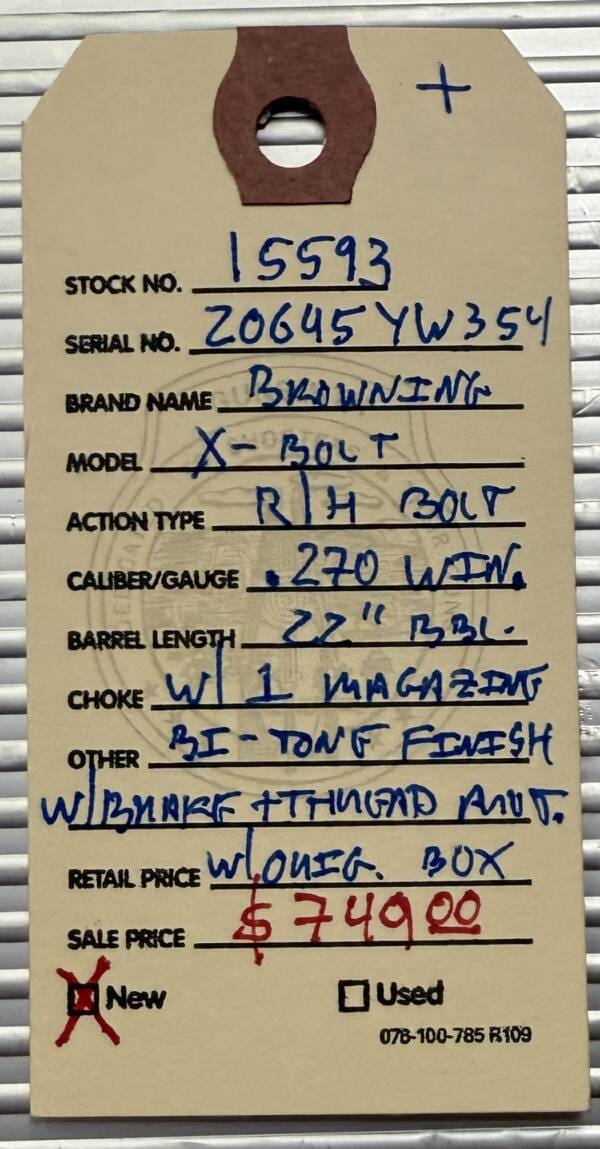 +
STOCK NO. 15593
SERIAL NO. 20645YW354
BRAND NAME BROWNING
MODEL X-BOLT
ACTION TYPE R/H BOLT
CALIBER/GAUGE .270 WIN.
BARREL LENGTH 22" BBL.
CHOKE W/ 1 MAGAZINE
OTHER BI-TONE FINISH
W/BRAKE + THREAD PROT.
RETAIL PRICE W/ORIG. BOX
SALE PRICE $749.00
New Used
076-100-785 R109